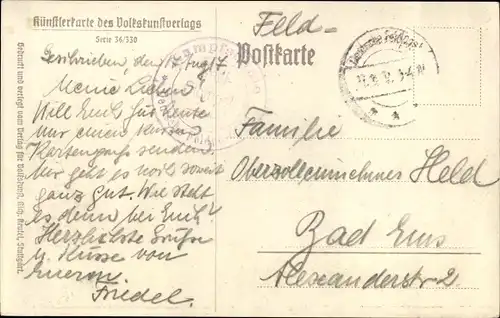 Künstlerkarte des Volkskunstverlags
Serie 36/330
Geschrieben, den 17. Aug. 17.
Meine Lieben!
Will Euch für heute
nur einen kurzen
Kartengruss senden.
Mir geht es noch soweit
ganz gut. Wie steht
es denn bei Euch?
Herzlichste Grüsse
u. Küsse von
Eurem
Friedel.
Feld-
Postkarte
Familie
Oberzolleinnehmer Held
Bad Ems
Alexanderstr. 2.
Gedruckt und verlegt vom Verlag für Volkskunst, Rich. Keutel, Stuttgart.